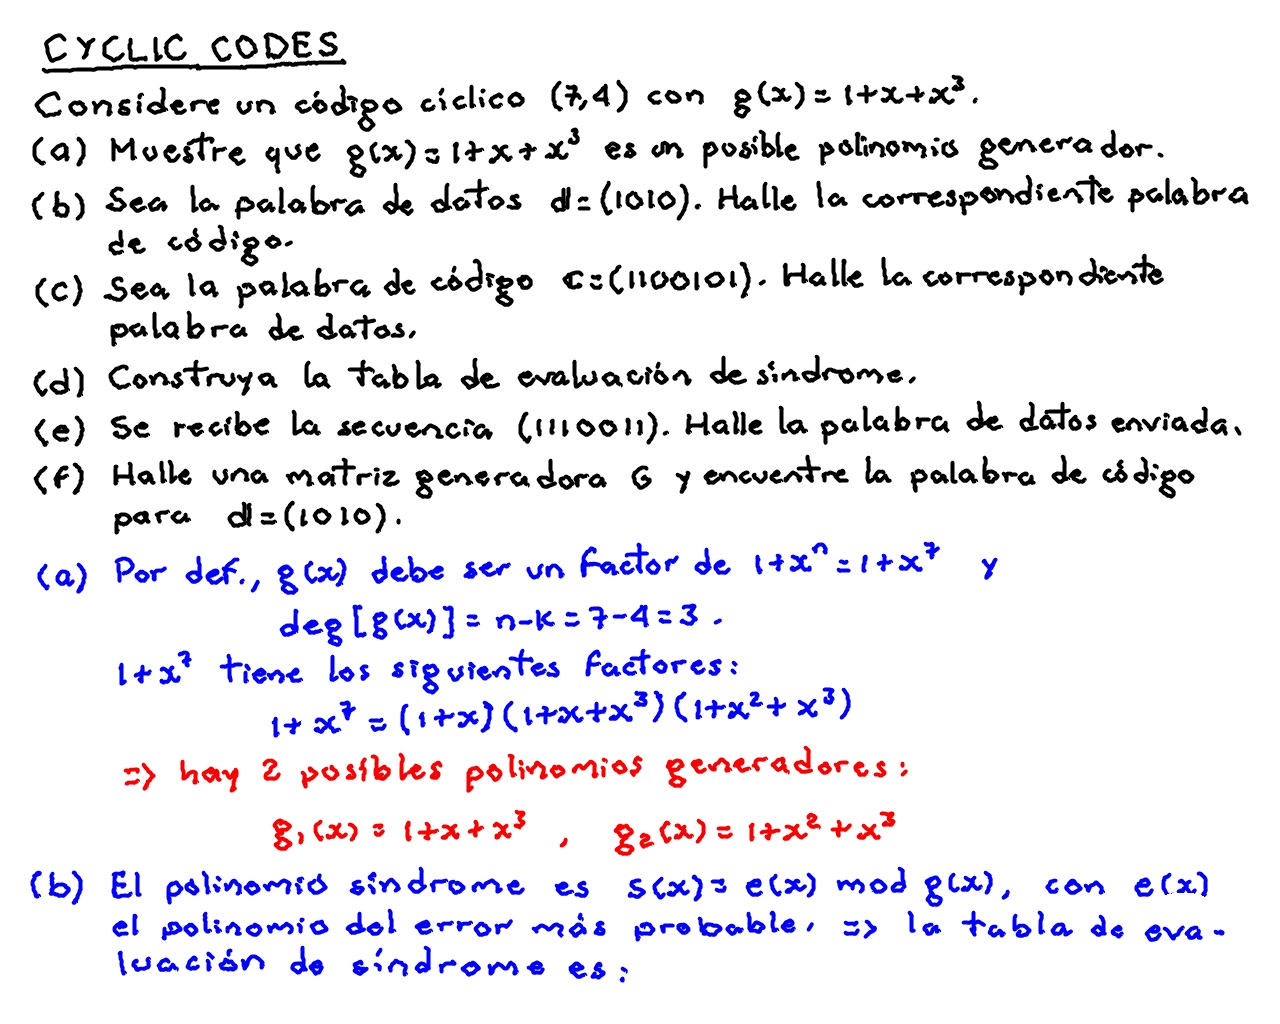 CYCLIC CODES
Considere un código cíclico (7,4) con g(x)=1+x+x³.
(a) Muestre que g(x)=1+x+x³ es un posible polinomio generador.
(b) Sea la palabra de datos d=(1010). Halle la correspondiente palabra
de código.
(c) Sea la palabra de código c=(1100101). Halle la correspondiente
palabra de datos.
(d) Construya la tabla de evaluación de síndrome.
(e) Se recibe la secuencia (1110011). Halle la palabra de datos enviada.
(f) Halle una matriz generadora G y encuentre la palabra de código
para d=(1010).
(a) Por def., g(x) debe ser un factor de 1+xⁿ=1+x⁷ y
deg[g(x)]=n-k=7-4=3.
1+x⁷ tiene los siguientes factores:
1+x⁷=(1+x)(1+x+x³)(1+x²+x³)
=> hay 2 posibles polinomios generadores:
g₁(x)=1+x+x³, g₂(x)=1+x²+x³
(b) El polinomio síndrome es s(x)=e(x) mod g(x), con e(x)
el polinomio del error más probable. => la tabla de eva-
luación de síndrome es: